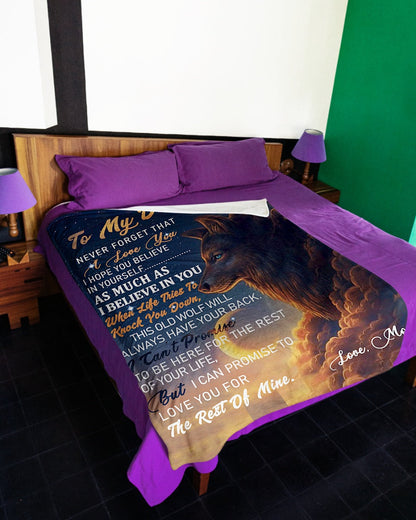 To My
NEVER FORGET THAT
I Love You
I HOPE YOU BELIEVE
IN YOURSELF
AS MUCH AS
I BELIEVE IN YOU
When Life Tries To
Knock You Down,
THIS OLD WOLF WILL
ALWAYS HAVE YOUR BACK.
I Can't Promise
TO BE HERE FOR THE REST
OF YOUR LIFE.
But I CAN PROMISE TO
LOVE YOU FOR
The Rest Of Mine.
Love,